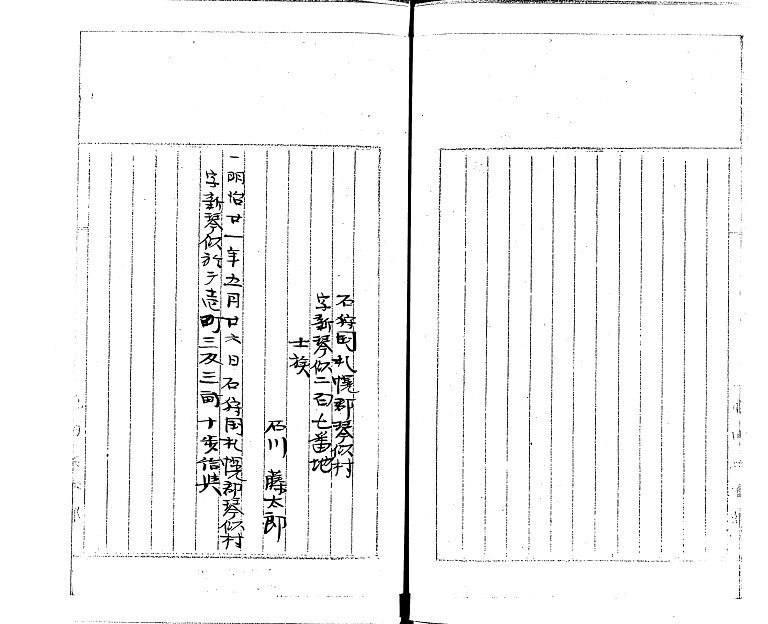 石狩国札幌郡琴似村
字新琴似二百七番地
士族
石川藤太郎
一明治廿一年五月廿六日石狩国札幌郡琴似村
字新琴似於テ壱町三反三畝十歩給与